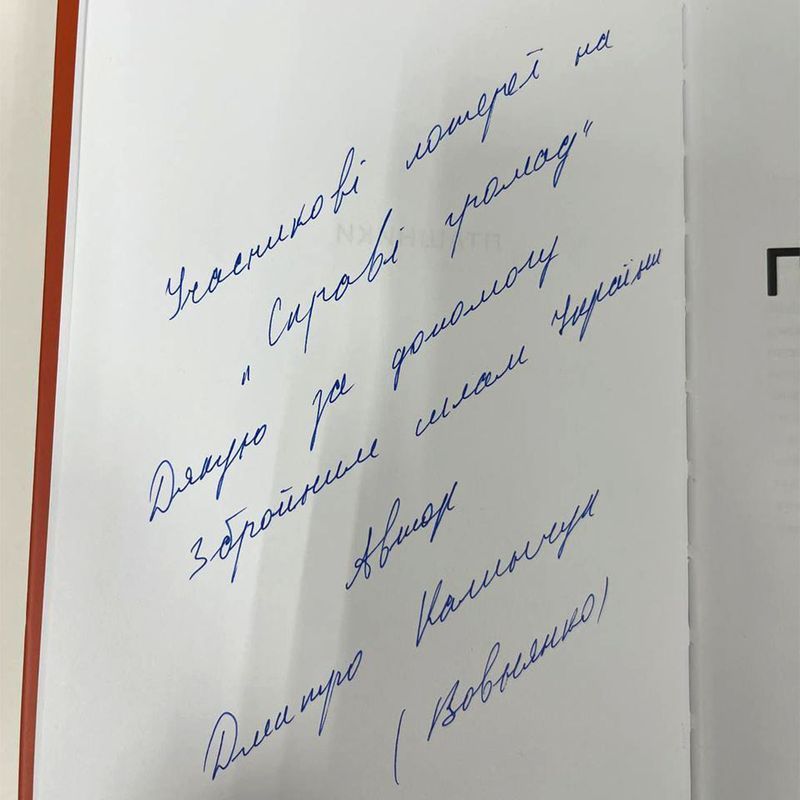 Учасникові лотереї на
„Справі громад“
Дякую за допомогу
Збройним силам України
Автор
Дмитро Калинчук
(Вовнянко)